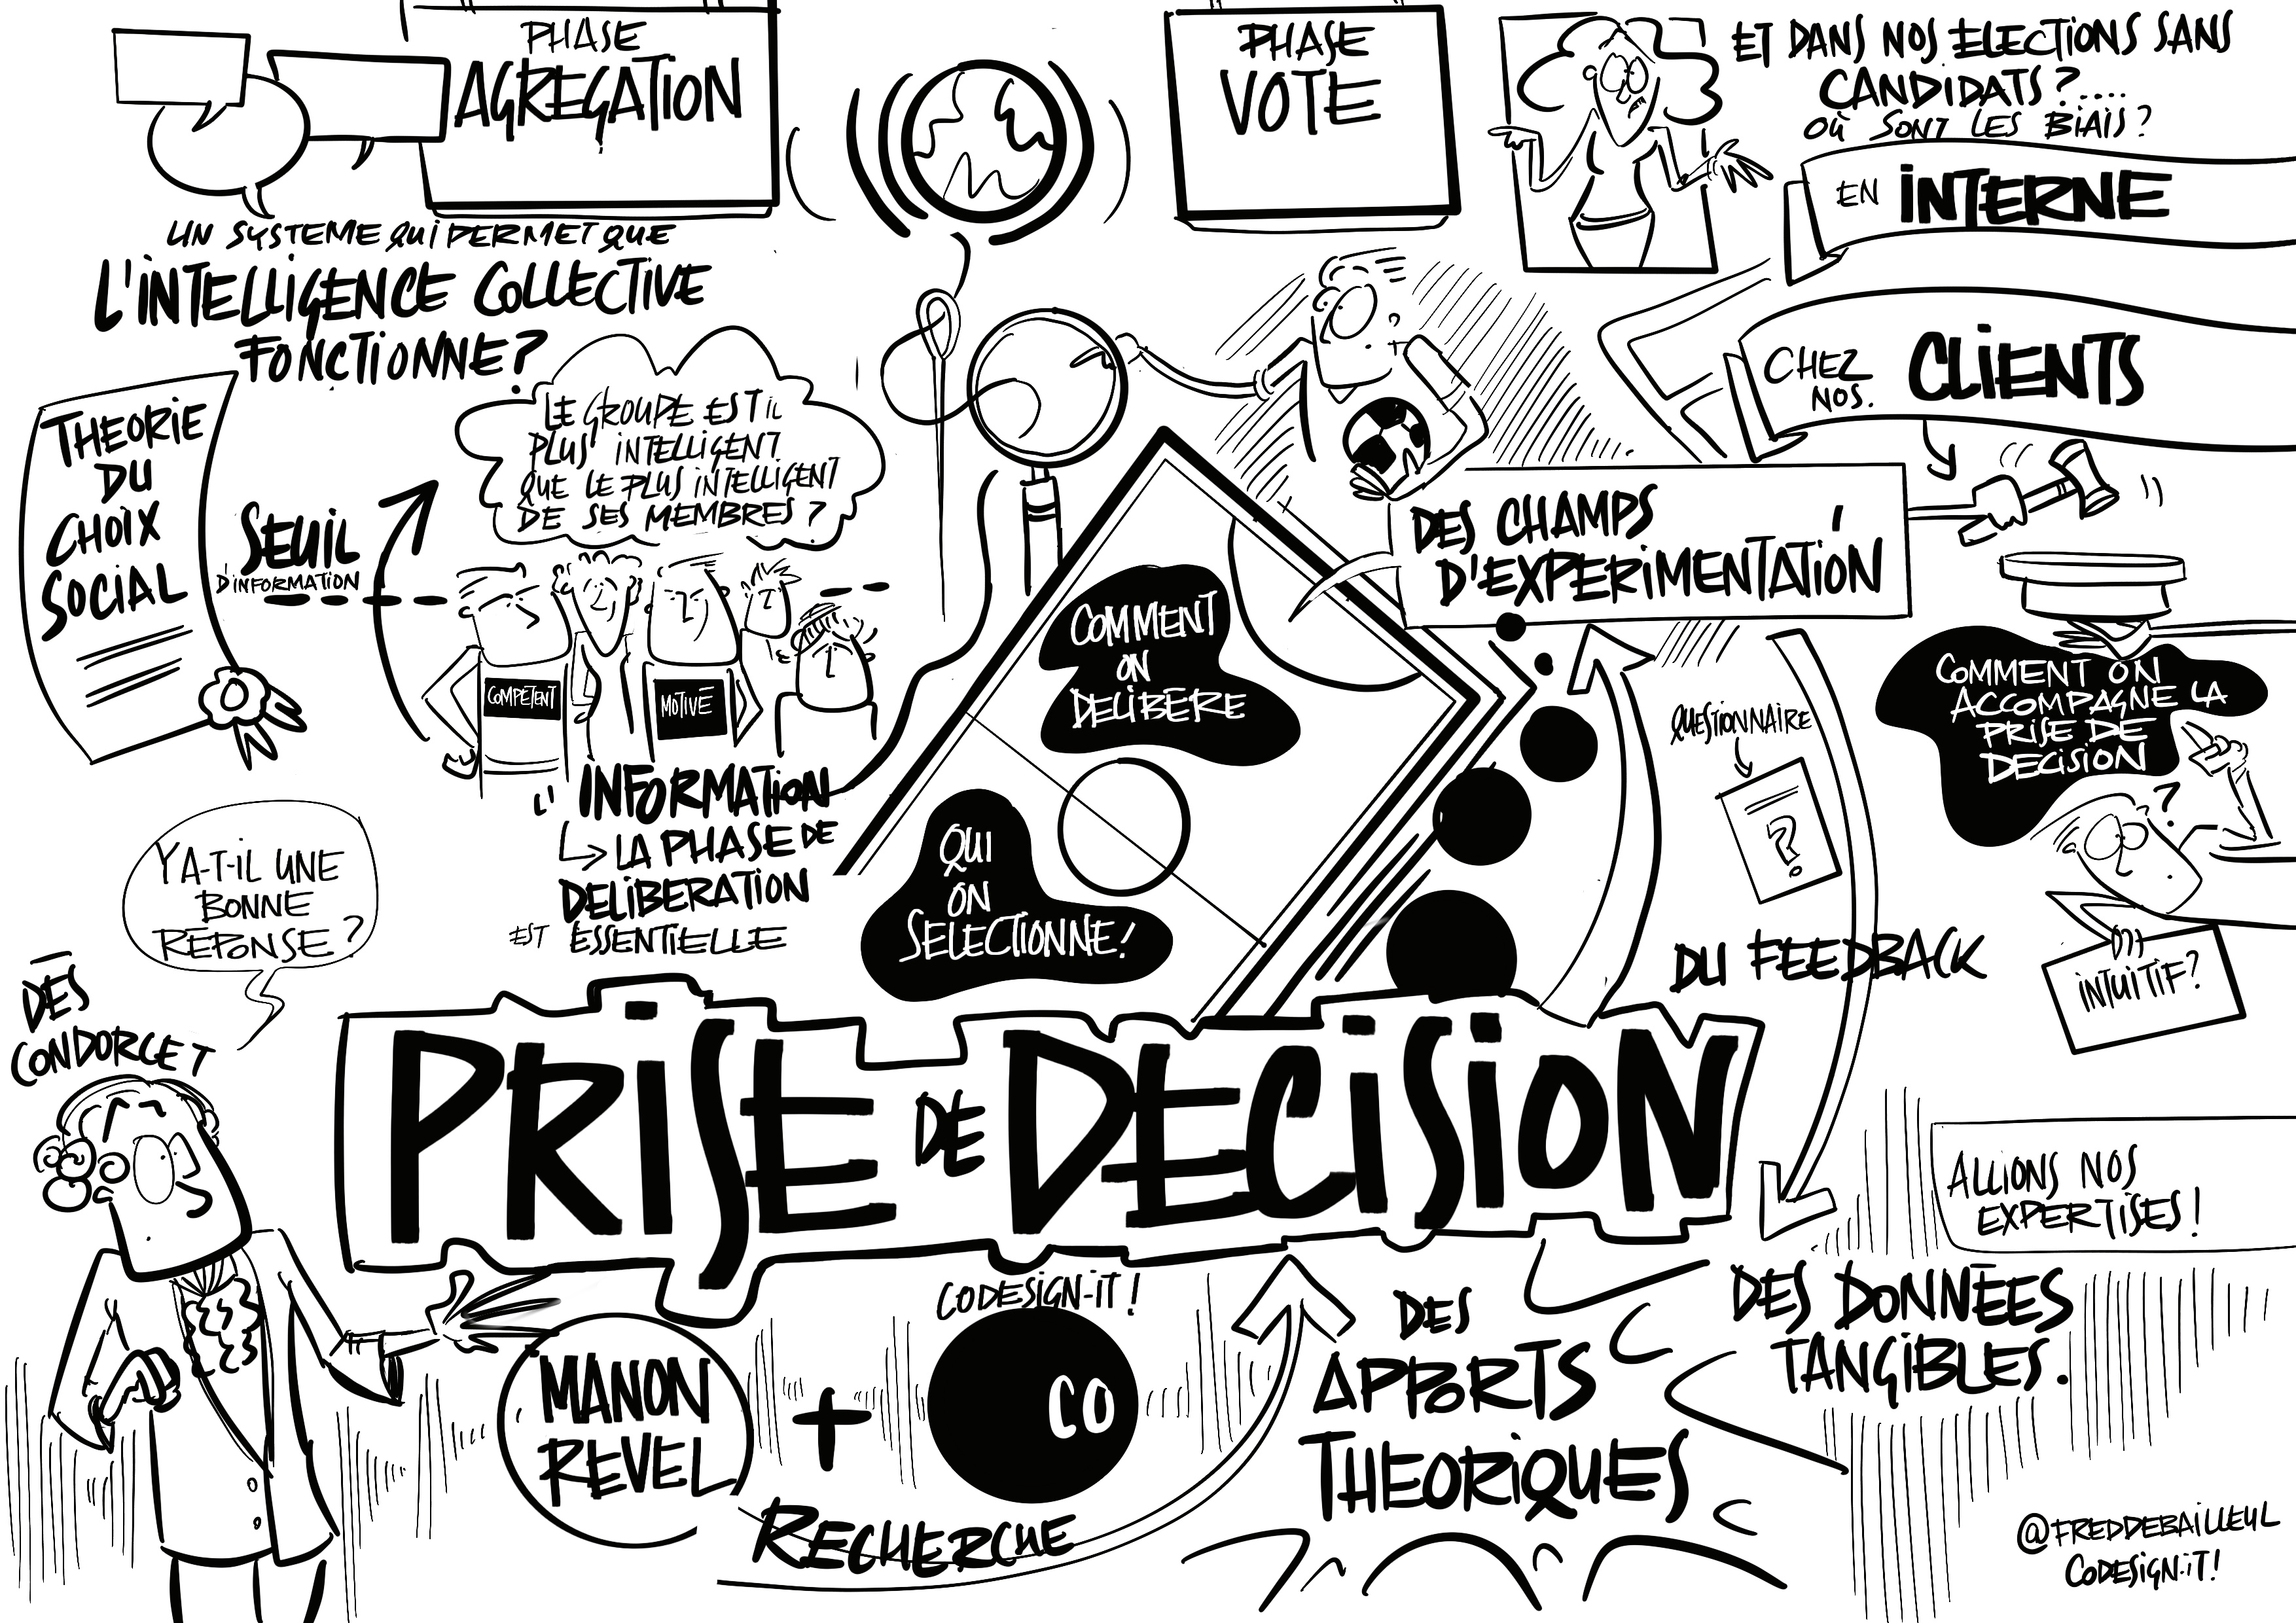 PHASE
AGREGATION
PHASE
VOTE
ET DANS NOS ELECTIONS SANS
CANDIDATS?....
OÙ SONT LES BIAIS?
EN INTERNE
CHEZ
NOS.
CLIENTS
UN SYSTEME QUI PERMET QUE
L'INTELLIGENCE COLLECTIVE
FONCTIONNE?
THEORIE
DU
CHOIX
SOCIAL
SEUIL
D'INFORMATION
LE GROUPE EST IL
PLUS INTELLIGENT
QUE LE PLUS INTELLIGENT
DE SES MEMBRES?
COMPETENT
MOTIVÉ
L'INFORMATION
LA PHASE DE
DELIBERATION
EST ESSENTIELLE
COMMENT
ON
DELIBÈRE
QUI
ON
SELECTIONNE!
DES CHAMPS
D'EXPERIMENTATION
QUESTIONNAIRE
?
DU FEEDBACK
COMMENT ON
ACCOMPAGNE LA
PRISE DE
DECISION
?
INTUITIF?
Y A-T-IL UNE
BONNE
REPONSE?
DÈS
CONDORCET
PRISE DE DECISION
ALLIONS NOS
EXPERTISES!
MANON
REVEL
+
CODESIGN-iT!
CO
RECHERCHE
DES
APPORTS
THEORIQUES
DES DONNÉES
TANGIBLES.
@FREDDEBAILLEUL
CODESIGN-iT!